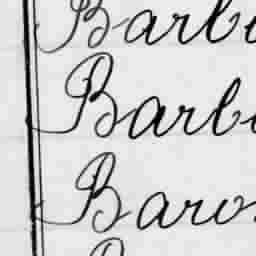 Barb
Barb
Baro